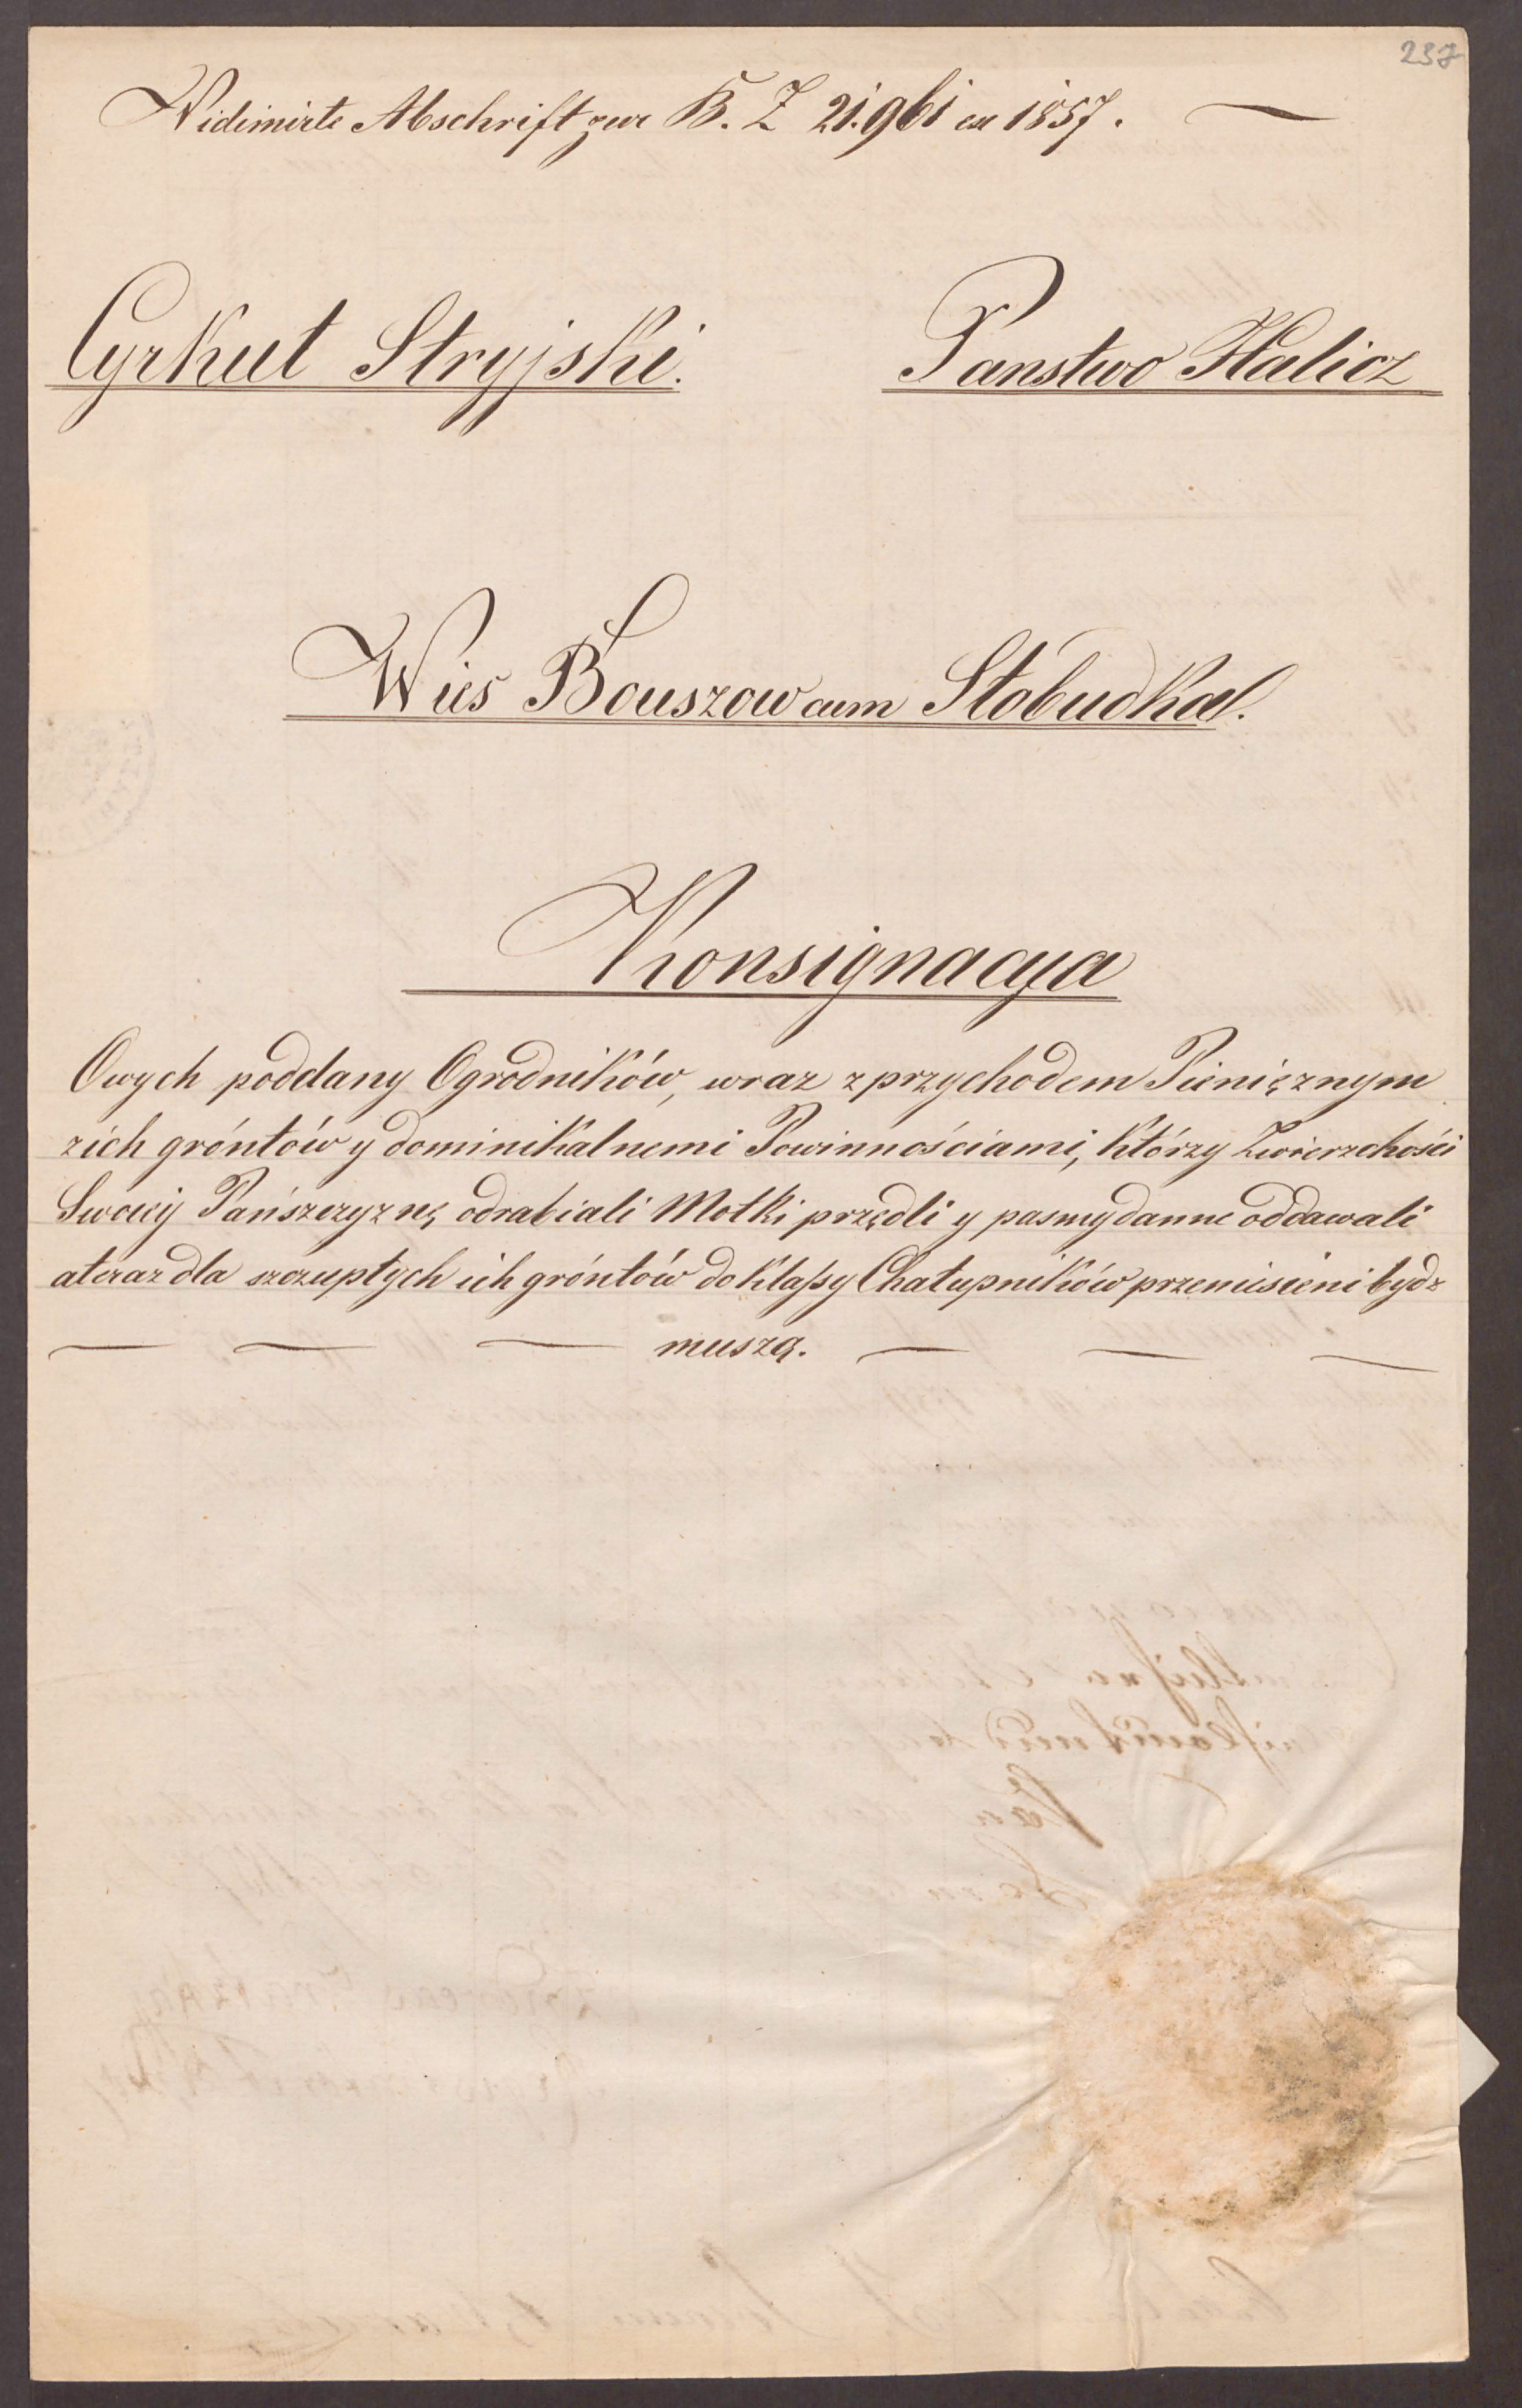 237
Vidimirte Abschrift zur B. Z 21.961 ex 1857.
Cyrkut Stryjski.
Panstwo Halicz
Wies Bouszow cum Słobudka.
Konsignacya
Owych poddany Ogrodników, wraz z przychodem Pieniężnym
z ich gróntów y dominikalnemi Powinnościami, którzy Zwierzchości
Swoiey Pańszczyznę odrabiali Motki przędli y pasmy danne oddawali
a teraz dla szczupłych ich gróntów do Klaſsy Chałupników przeniesieni bydz
muszą.